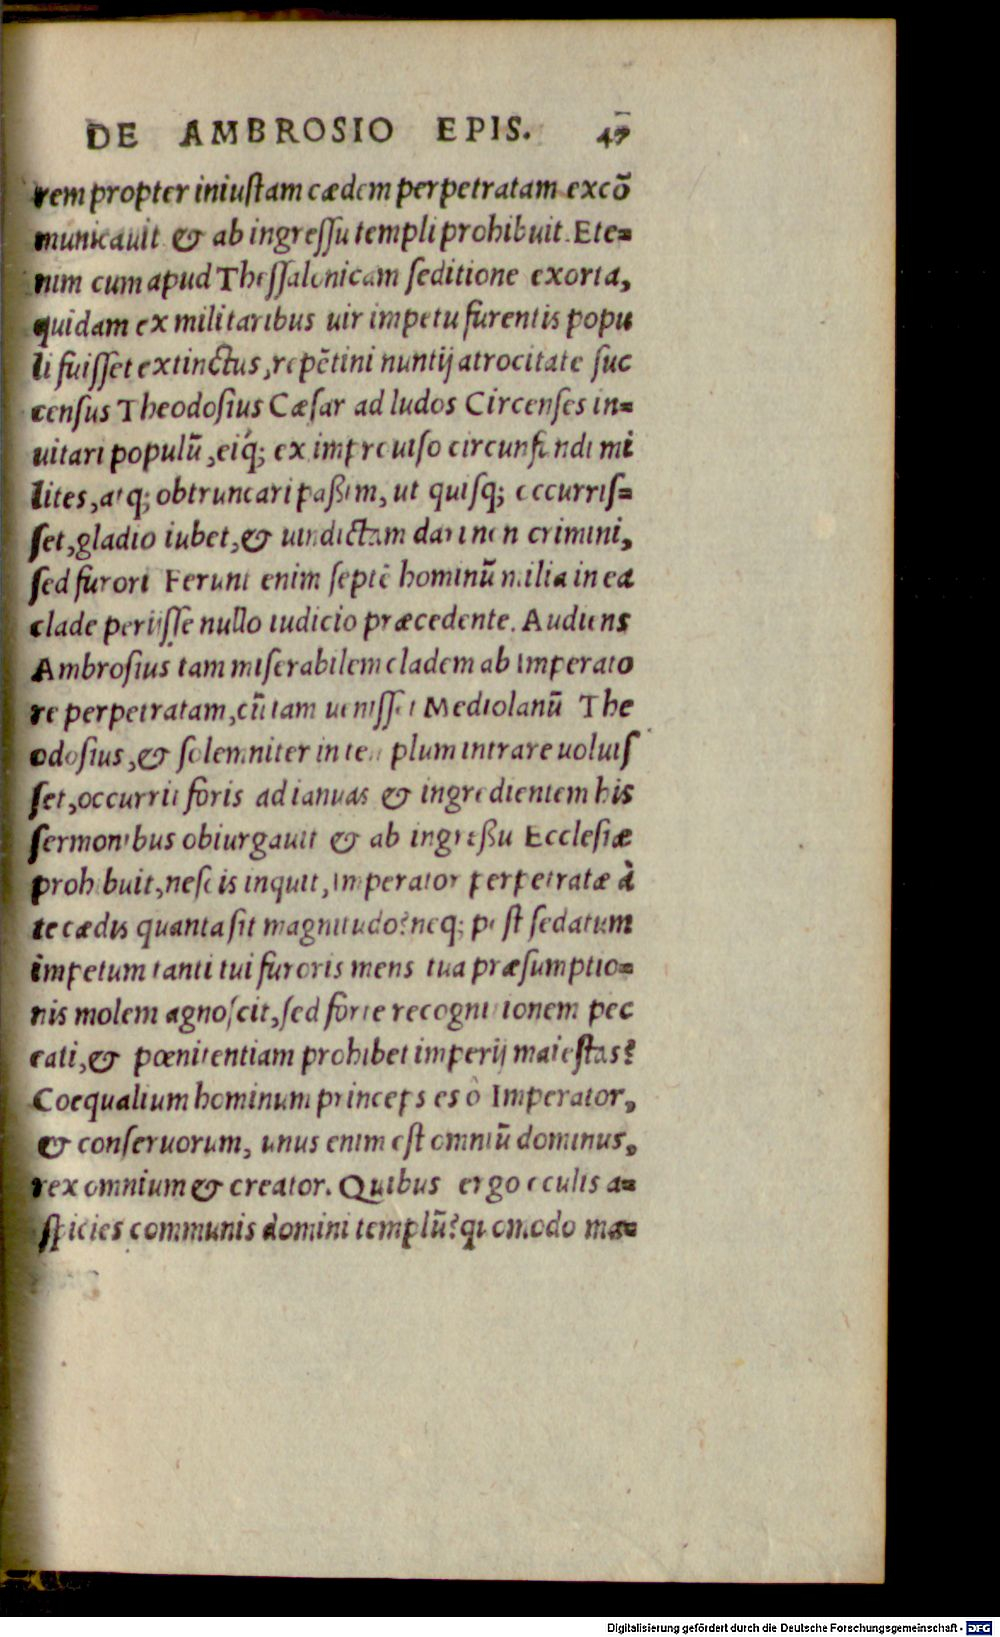 DE AMBROSIO EPIS. 47
rem propter iniuſtam cædem perpetratam excō
municauit & ab ingreſſu templi prohibuit. Ete=
nim cum apud Theſſalonicam ſeditione exorta,
quidam ex militaribus uir impetu furentis popu
li fuiſſet extinctus, repētini nuntij atrocitate ſuc
cenſus Theodoſius Cæſar ad ludos Circenſes in=
uitari populū, eiq́; ex improuiſo circunfundi mi
lites, atq; obtruncari paßim, ut quiſq; occurriſ=
ſet, gladio iubet, & uindictam dari non crimini,
ſed furori Ferunt enim ſeptē hominū milia in ea
clade perijſſe nullo iudicio præcedente. Audiens
Ambroſius tam miſerabilem cladem ab Imperato
re perpetratam, cū iam ueniſſet Mediolanū The
odoſius, & ſolemniter in templum intrare uoluiſ
ſet, occurrit foris ad ianuas & ingredientem his
ſermonibus obiurgauit & ab ingreßu Eccleſiæ
prohibuit, neſcis inquit, Imperator perpetratæ à
te cædis quanta ſit magnitudo? neq; poſt ſedatum
impetum tanti tui furoris mens tua præſumptio=
nis molem agnoſcit, ſed forte recognitionem pec
cati, & pœnitentiam prohibet imperij maieſtas?
Coequalium hominum princeps es ô Imperator,
& conſeruorum, unus enim eſt omniū dominus,
rex omnium & creator. Quibus ergo oculis a=
ſpicies communis domini templū? quomodo ma=
Digitalisierung gefördert durch die Deutsche Forschungsgemeinschaft - DFG